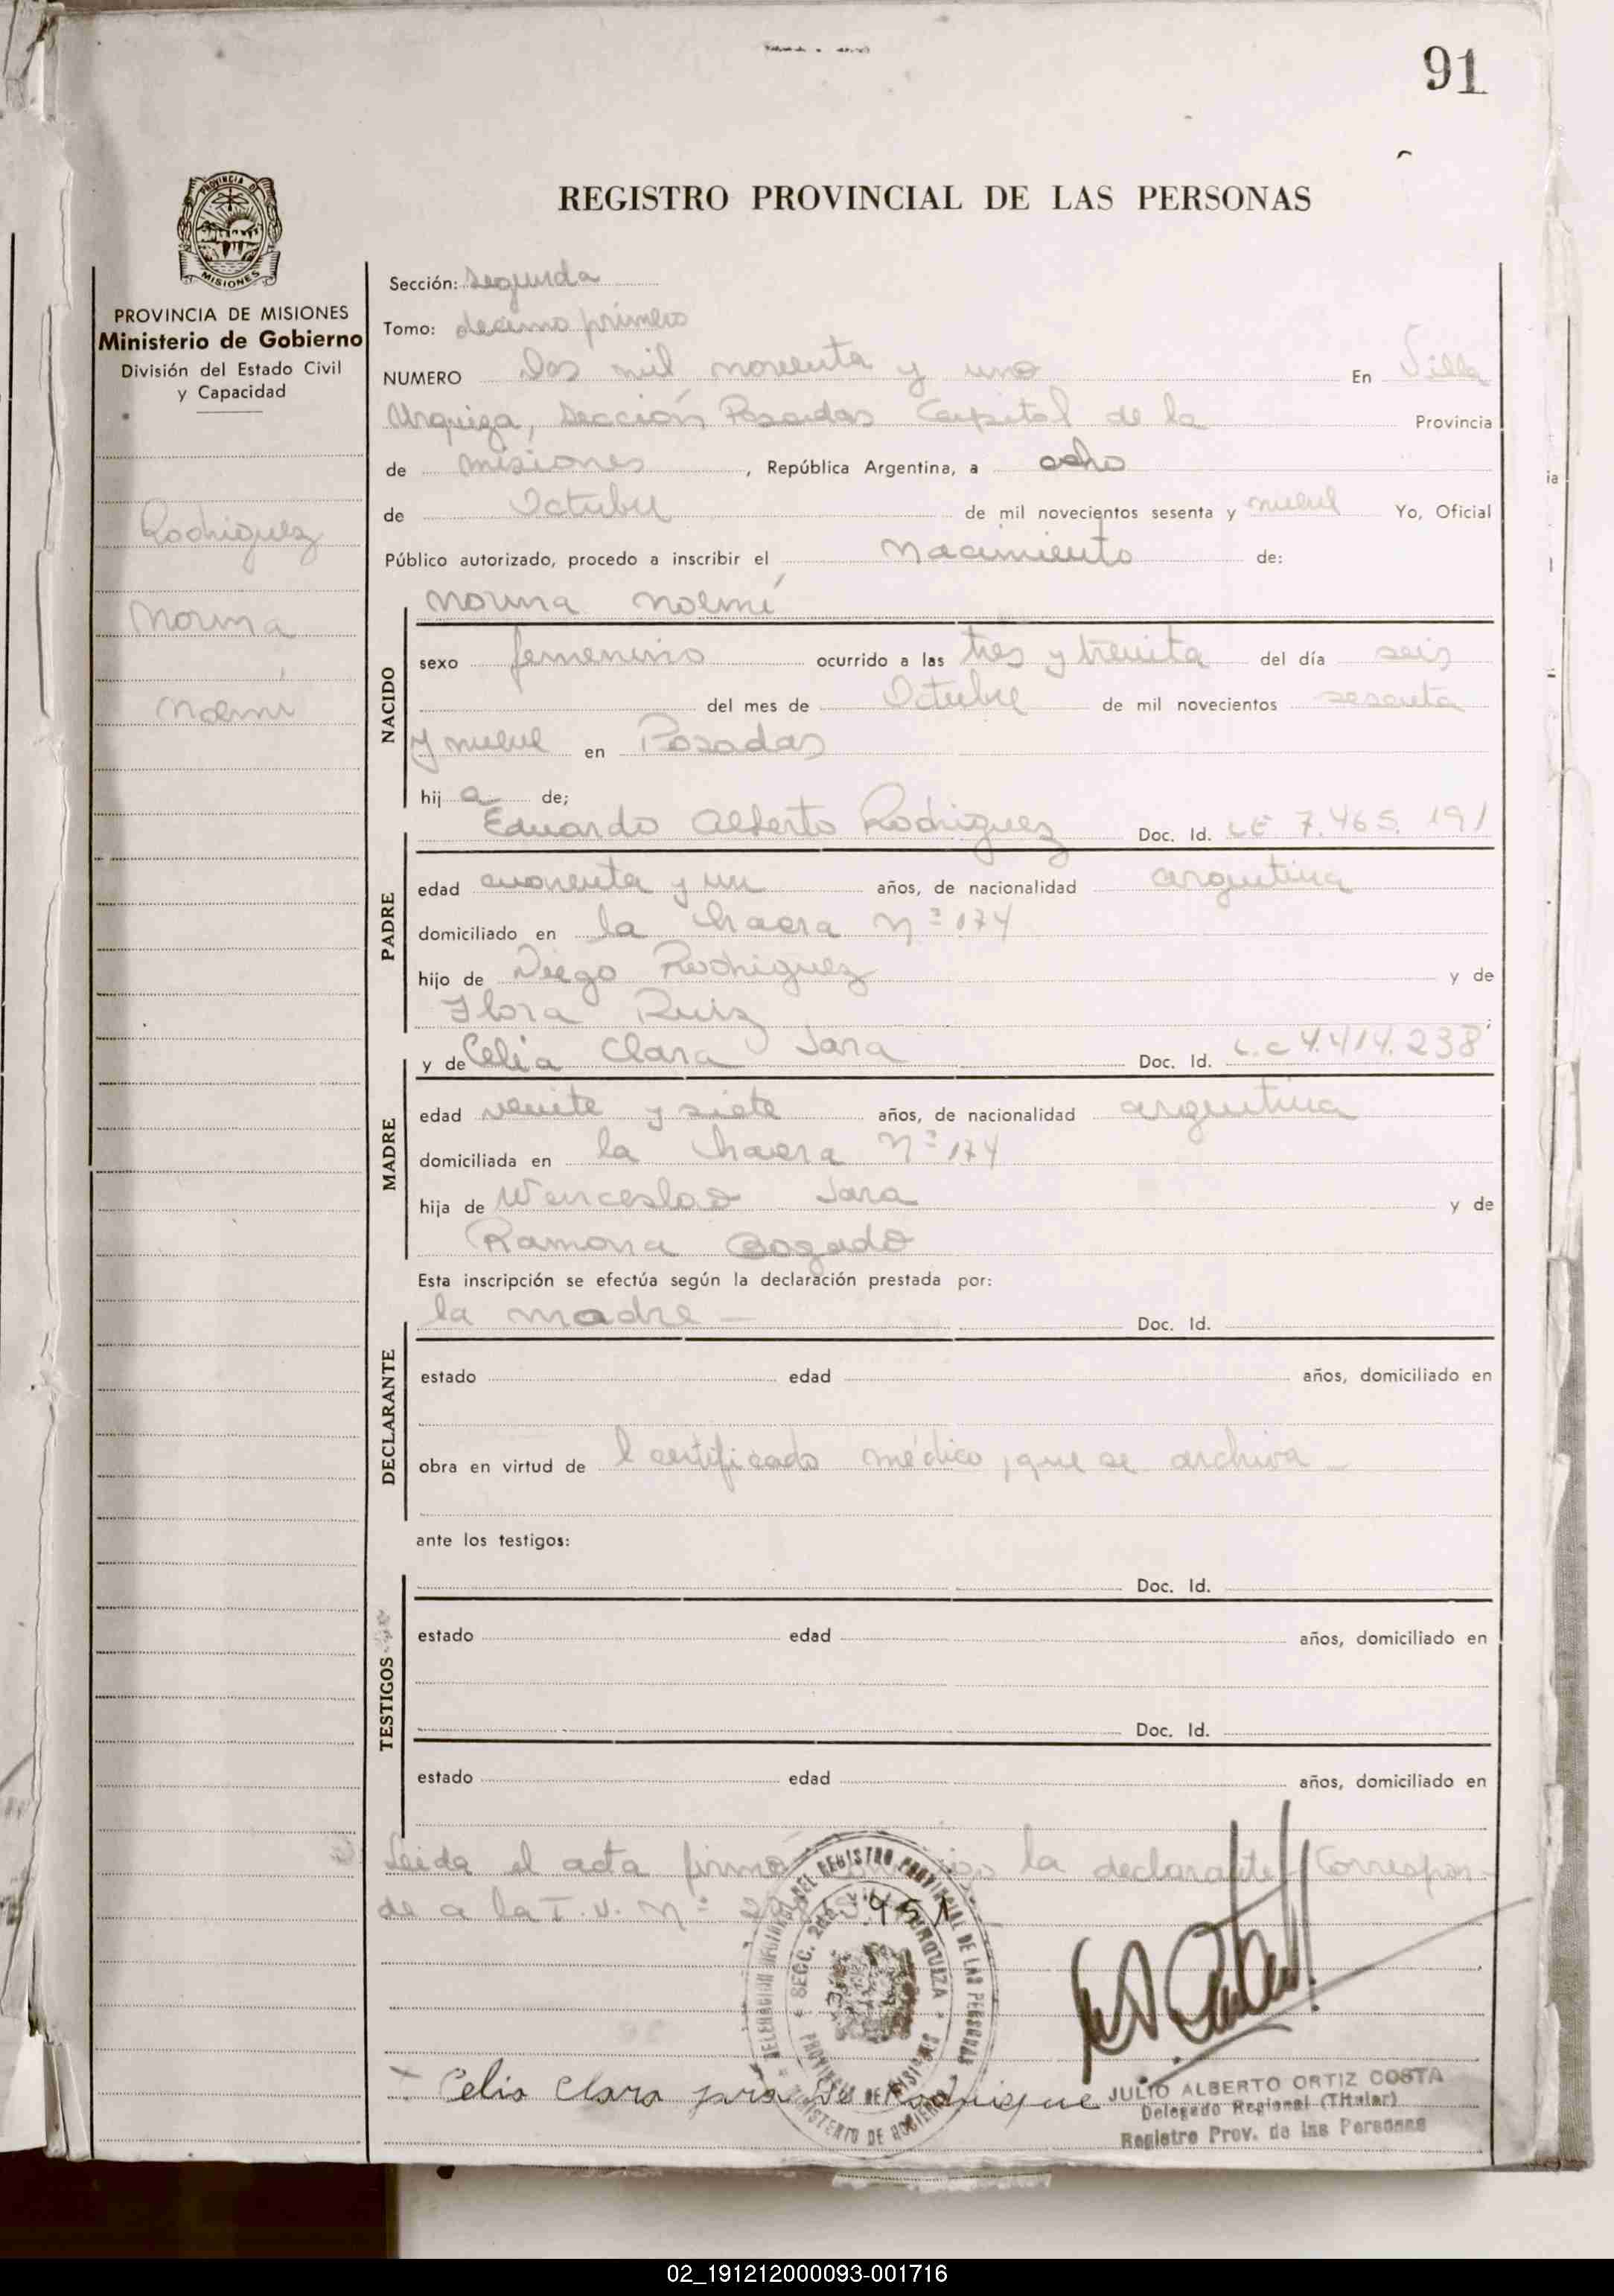 91
REGISTRO PROVINCIAL DE LAS PERSONAS
PROVINCIA DE MISIONES
Ministerio de Gobierno
División del Estado Civil
y Capacidad
Rodriguez
Norma
Noemí
Sección: Segunda
Tomo: decimo primero
NUMERO Dos mil noventa y uno En Villa
Urquiza, Sección Posadas Capital de la Provincia
de misiones, República Argentina, a ocho
de Octubre de mil novecientos sesenta y nueve Yo, Oficial
Público autorizado, procedo a inscribir el Nacimiento de:
NACIDO
Norma Noemí
sexo femenino ocurrido a las tres y treinta del día seis
del mes de Octubre de mil novecientos sesenta
y nueve en Posadas
hij a de;
PADRE
Eduardo Alberto Rodriguez Doc. Id. LE 7.465.191
edad cuarenta y un años, de nacionalidad argentina
domiciliado en la chacra Nº 174
hijo de Diego Rodriguez y de
Flora Ruiz
MADRE
y de Celia Clara Jara Doc. Id. L.C 4.414.238
edad veinte y siete años, de nacionalidad argentina
domiciliada en la chacra Nº 174
hija de Wenceslao Jara y de
Ramona Bogado
Esta inscripción se efectúa según la declaración prestada por:
DECLARANTE
la madre — Doc. Id.
estado edad años, domiciliado en
obra en virtud de l certificado médico, que se archiva —
ante los testigos:
TESTIGOS
Doc. Id.
estado edad años, domiciliado en
Doc. Id.
estado edad años, domiciliado en
Leida el acta firma la declarante Correspon-
de a la T. N. Nº 451
DELEGACION DEL REGISTRO PROVINCIAL DE LAS PERSONAS
SECC. 2da. URQUIZA
PROVINCIA DE MISIONES
MINISTERIO DE GOBIERNO
Celia Clara Jara de Rodrigue
JULIO ALBERTO ORTIZ COSTA
Delegado Regional (Titular)
Registro Prov. de las Personas
02_191212000093-001716